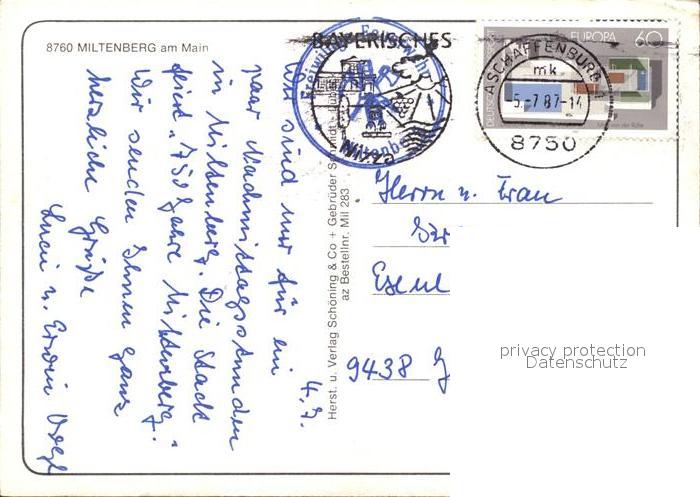 8760 MILTENBERG am Main
4.7.
Wir sind nur für ein
paar Nachmittagsstunden
in Miltenberg. Die Stadt
feiert „750 Jahre Miltenberg".
Wir senden Ihnen ganz
herzliche Grüße
Luci u. Erwin Vogl
Herst. u. Verlag Schöning & Co + Gebrüder Schmidt
az Bestellnr. Mil 283
BAYERISCHES
Miltenberg
EUROPA 60
ASCHAFFENBURG
mk
-5.-7.87-14
8750
Herrn u. Frau
9438
privacy protection
Datenschutz